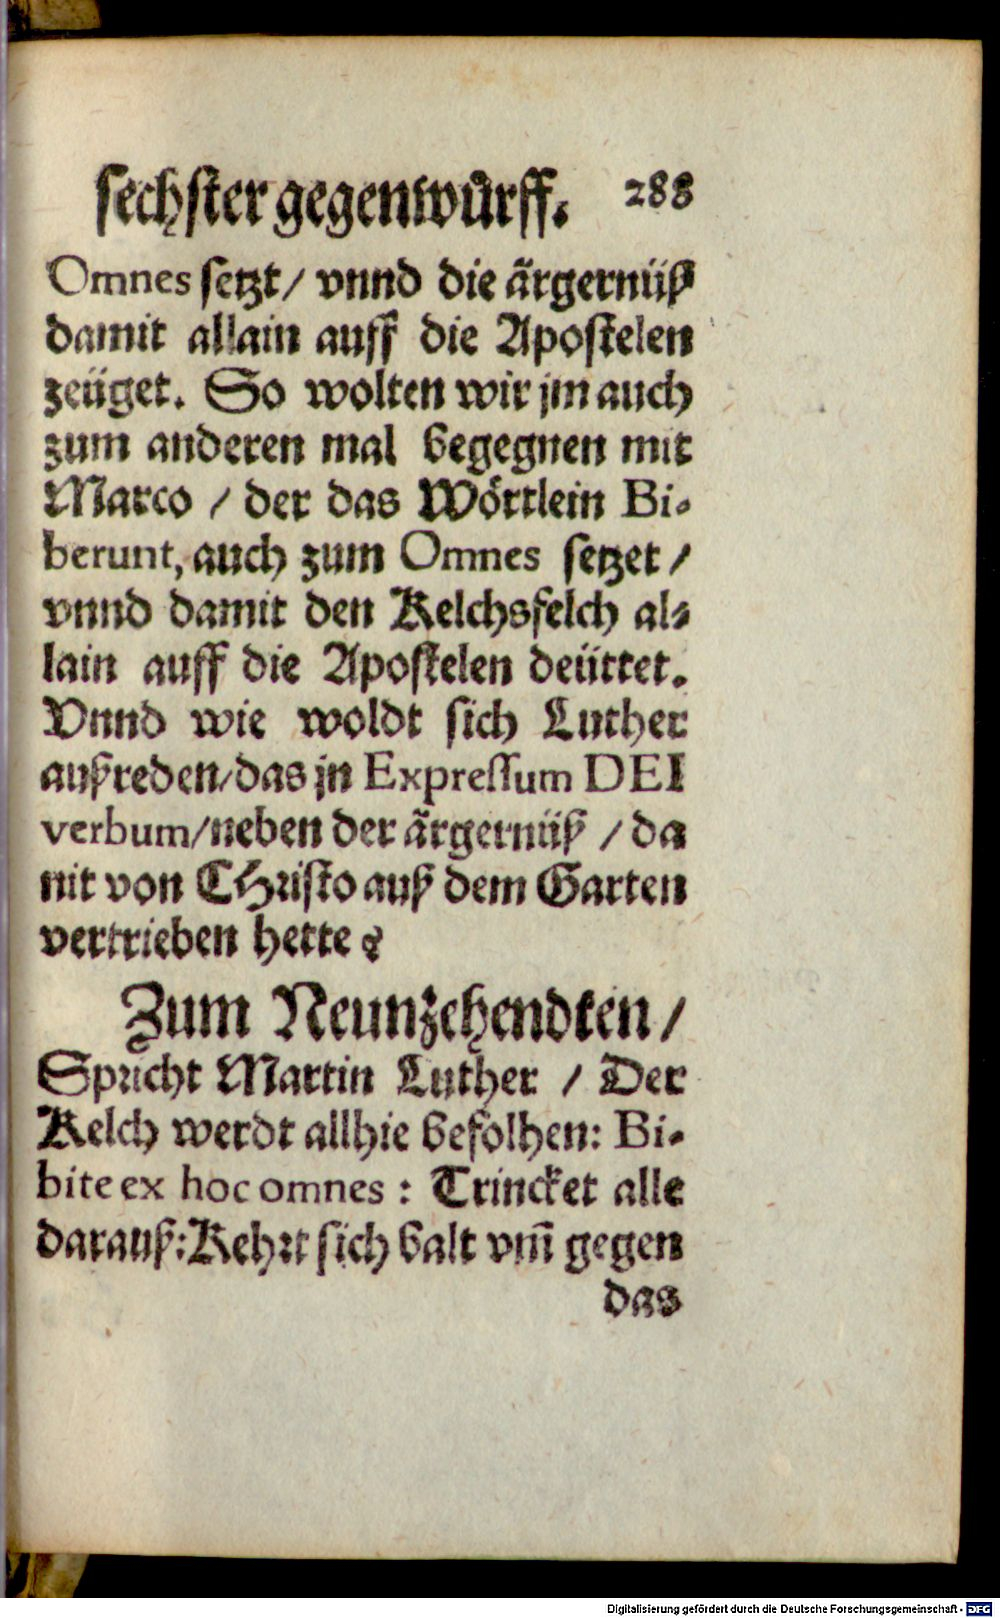 sechster gegenwürff. 288
Omnes setzt / vnnd die ärgernüß
damit allain auff die Apostelen
zeüget. So wolten wir jm auch
zum anderen mal begegnen mit
Marco / der das Wörtlein Bi-
berunt, auch zum Omnes setzet /
vnnd damit den Kelchsfelch al-
lain auff die Apostelen deüttet.
Vnnd wie woldt sich Luther
außreden/das jn Expressum DEI
verbum/neben der ärgernüß / da
nit von CHristo auß dem Garten
vertrieben hette?
Zum Neunzehendten /
Spricht Martin Luther / Der
Kelch werdt allhie befolhen: Bi-
bite ex hoc omnes : Trincket alle
darauß: Kehrt sich balt vm̃ gegen
das
Digitalisierung gefördert durch die Deutsche Forschungsgemeinschaft - DFG